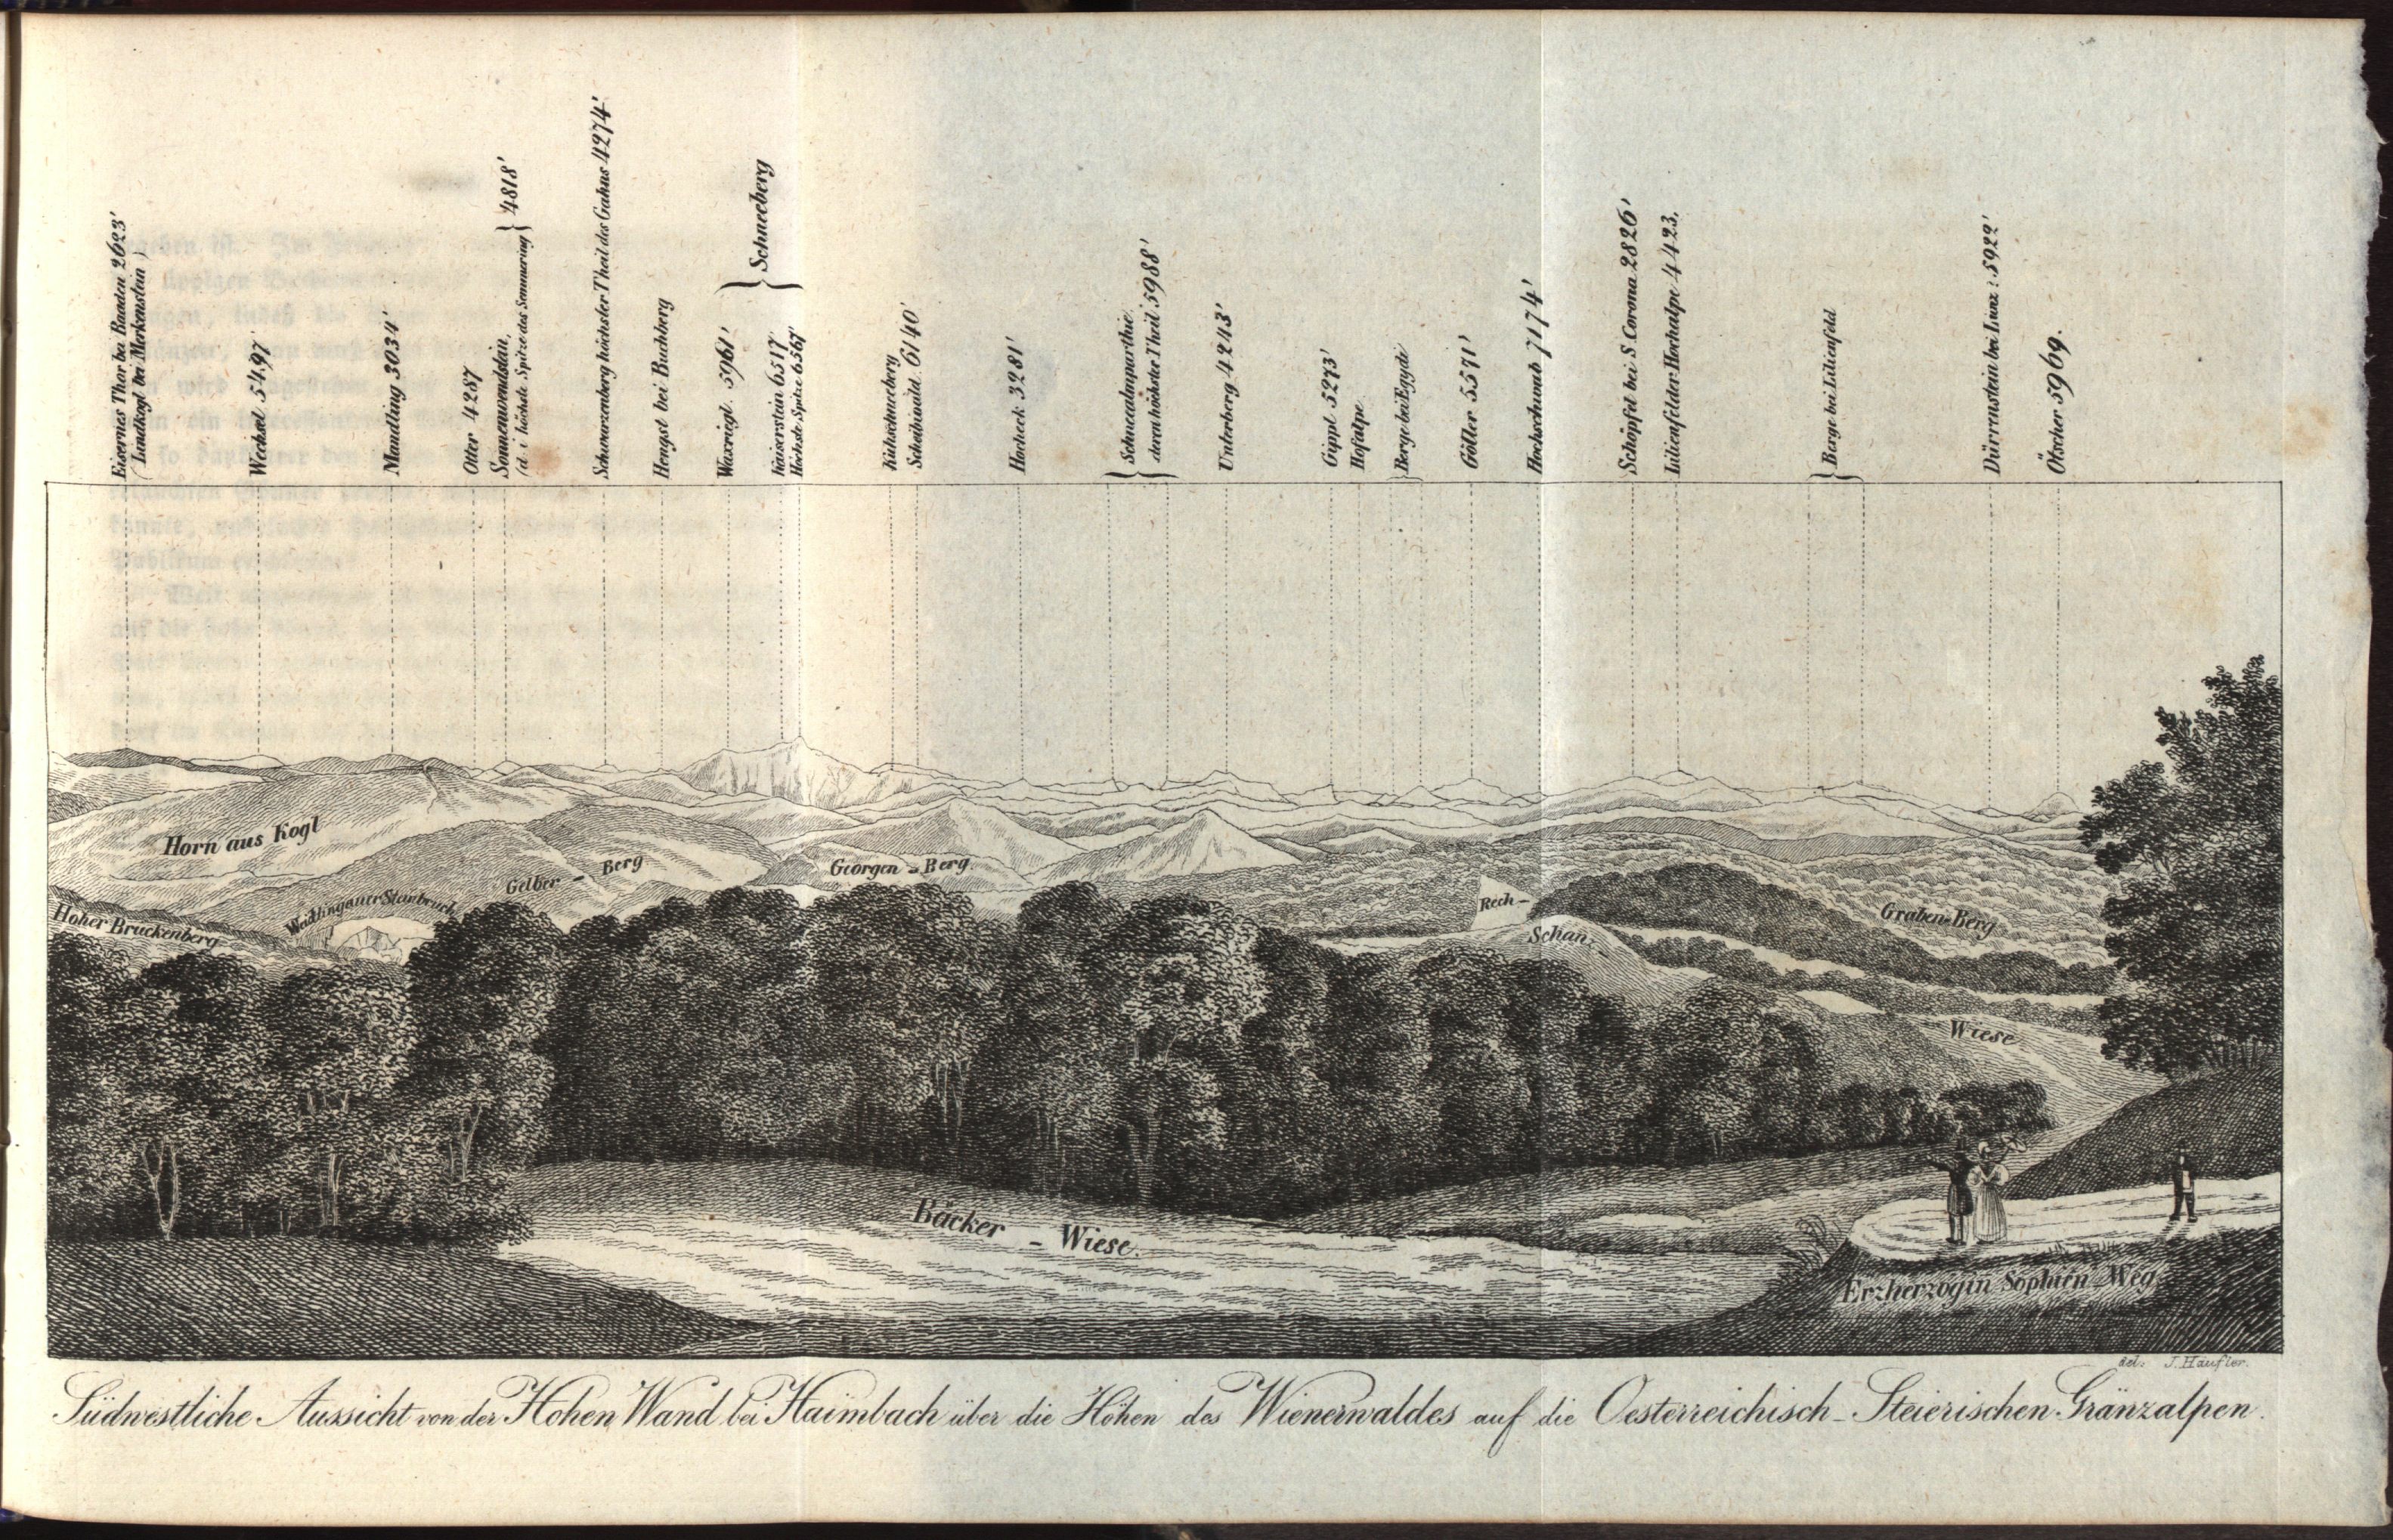 Eisernes Thor bei Baaden 2623'
(Lindkogl bei Merkenstein)
Wechsel 5497
Mandling 3034'
Otter 4287
Sonnenwendstein,
(d. i höchste Spitze des Semmering} 4818'
Schwarzenberg höchster Theil des Gahns 4274'
Hengst bei Buchberg
Waxriegl. 5961'
Kaiserstein 6517'
Höchste Spitze 6567'
} Schneeberg
Kuhschneeberg
Scheibwald. 6140'
Hoheck 3281'
{ Schneealmparthie.
deren höchster Theil 5988'
Unterberg 4243'
Gippl 5273'
Hofalpe
Berge bei Egydi
Göller 5571'
Hochschwab 7174'
Schöpfel bei S. Corona 2826'
Lilienfelder Hochalpe 4423,
{ Berge bei Lilienfeld
Dürrnstein bei Lunz: 5922'
Ötscher 5969.
Horn aus Kogl
Hoher Bruckenberg
Weidlingauer Steinbruch
Gelber - Berg
Georgen - Berg.
Rech-
Schan.
Graben-Berg
Wiese
Bäcker - Wiese.
Erzherzogin Sophien Weg
del: J. Häufler.
Südwestliche Aussicht von der Hohen Wand bei Haimbach über die Höhen des Wienerwaldes auf die Oesterreichisch-Steierischen Gränzalpen.